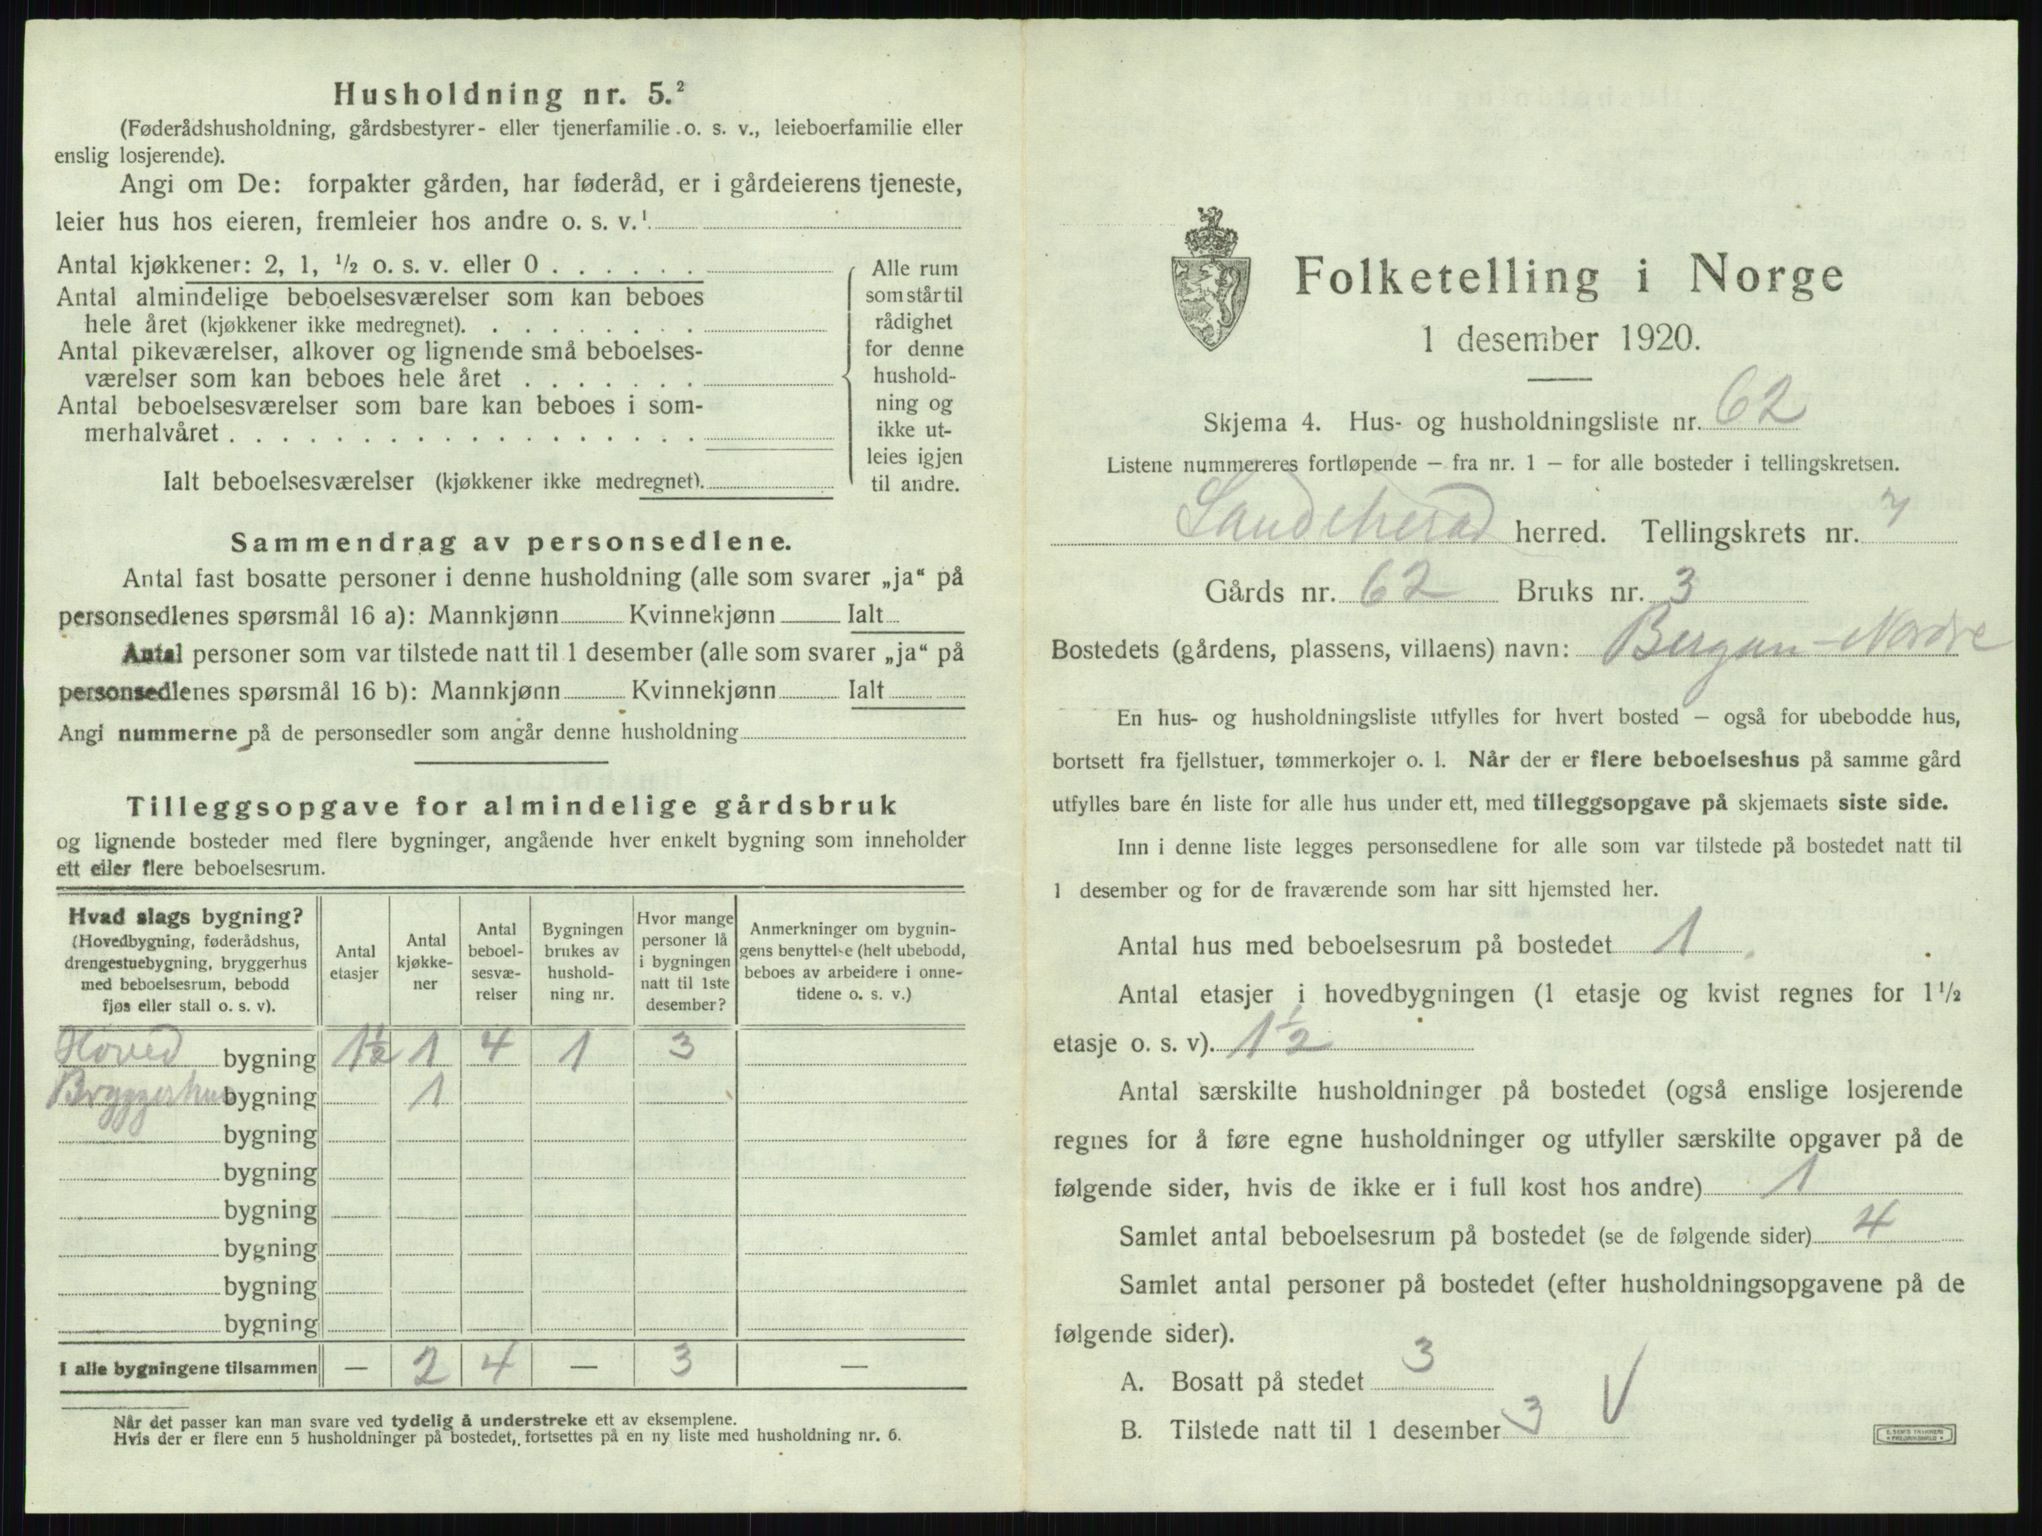 Husholdning nr. 5.²
(Føderådshusholdning, gårdsbestyrer- eller tjenerfamilie o. s. v., leieboerfamilie eller
enslig losjerende).
Angi om De: forpakter gården, har føderåd, er i gårdeierens tjeneste,
leier hus hos eieren, fremleier hos andre o. s. v.¹
Antal kjøkkener: 2, 1, ½ o. s. v. eller 0 . . . . . .
Antal almindelige beboelsesværelser som kan beboes
hele året (kjøkkener ikke medregnet). . . . . . . . .
Antal pikeværelser, alkover og lignende små beboelses-
værelser som kan beboes hele året . . . . . . .
Antal beboelsesværelser som bare kan beboes i som-
merhalvåret . . . . . . . . . . . . . . . . . .
Ialt beboelsesværelser (kjøkkener ikke medregnet).
Alle rum
som står til
rådighet
for denne
hushold-
ning og
ikke ut-
leies igjen
til andre.
Sammendrag av personsedlene.
Antal fast bosatte personer i denne husholdning (alle som svarer „ja“ på
personsedlenes spørsmål 16 a): Mannkjønn Kvinnekjønn Ialt
Antal personer som var tilstede natt til 1 desember (alle som svarer „ja“ på
personsedlenes spørsmål 16 b): Mannkjønn Kvinnekjønn Ialt
Angi nummerne på de personsedler som angår denne husholdning
Tilleggsopgave for almindelige gårdsbruk
og lignende bosteder med flere bygninger, angående hver enkelt bygning som inneholder
ett eller flere beboelsesrum.
Hvad slags bygning?
(Hovedbygning, føderådshus,
drengestuebygning, bryggerhus
med beboelsesrum, bebodd
fjøs eller stall o. s. v).
Antal
etasjer
Antal
kjøkke-
ner
Antal
beboel-
sesvæ-
relser
Bygningen
brukes av
hushold-
ning nr.
Hvor mange
personer lå
i bygningen
natt til 1ste
desember?
Anmerkninger om bygnin-
gens benyttelse (helt ubebodd,
beboes av arbeidere i onne-
tidene o. s. v.)
Hoved bygning 1½ 1 4 1 3
Bryggerhus bygning 1
bygning
bygning
bygning
bygning
bygning
bygning
I alle bygningene tilsammen — 2 4 — 3 —
Når det passer kan man svare ved tydelig å understreke ett av eksemplene.
Hvis der er flere enn 5 husholdninger på bostedet, fortsettes på en ny liste med husholdning nr. 6.
Folketelling i Norge
1 desember 1920.
Skjema 4. Hus- og husholdningsliste nr. 62
Listene nummereres fortløpende – fra nr. 1 – for alle bosteder i tellingskretsen.
Sandeherad herred. Tellingskrets nr. 7
Gårds nr. 62 Bruks nr. 3
Bostedets (gårdens, plassens, villaens) navn: Bergan-Nordre
En hus- og husholdningsliste utfylles for hvert bosted – også for ubebodde hus,
bortsett fra fjellstuer, tømmerkojer o. l. Når der er flere beboelseshus på samme gård
utfylles bare én liste for alle hus under ett, med tilleggsopgave på skjemaets siste side.
Inn i denne liste legges personsedlene for alle som var tilstede på bostedet natt til
1 desember og for de fraværende som har sitt hjemsted her.
Antal hus med beboelsesrum på bostedet 1
Antal etasjer i hovedbygningen (1 etasje og kvist regnes for 1½
etasje o. s. v). 1½
Antal særskilte husholdninger på bostedet (også enslige losjerende
regnes for å føre egne husholdninger og utfyller særskilte opgaver på de
følgende sider, hvis de ikke er i full kost hos andre) 1
Samlet antal beboelsesrum på bostedet (se de følgende sider) 4
Samlet antal personer på bostedet (efter husholdningsopgavene på de
følgende sider).
A. Bosatt på stedet 3
B. Tilstede natt til 1 desember 3